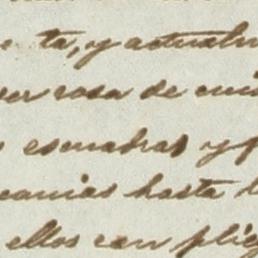 ta, y actualm
ver rosa de cui
escuadras y p
canias hasta l
ellos con plie